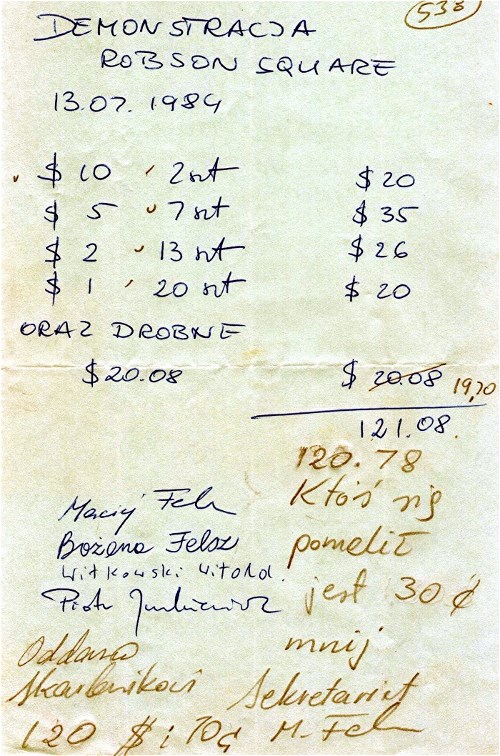 533
DEMONSTRACJA
ROBSON SQUARE
13.07.1984
$ 10 2 szt $ 20
$ 5 7 szt $ 35
$ 2 13 szt $ 26
$ 1 20 szt $ 20
ORAZ DROBNE
$20.08 $ 20.08 19,70
121.08.
120.78
Ktoś się
pomylił
jest 30 ¢
mnij
Maciej
Bożena Felsz
Witkowski Witold.
Piotr
Oddano
Skarbnikowi
120 $ i 70¢
Sekretariat
M.